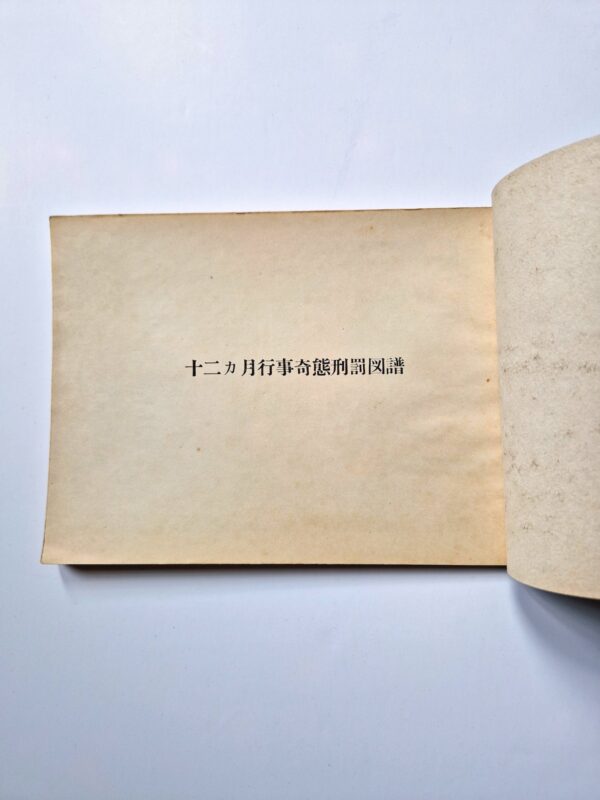 十二カ月行事奇態刑罰図譜